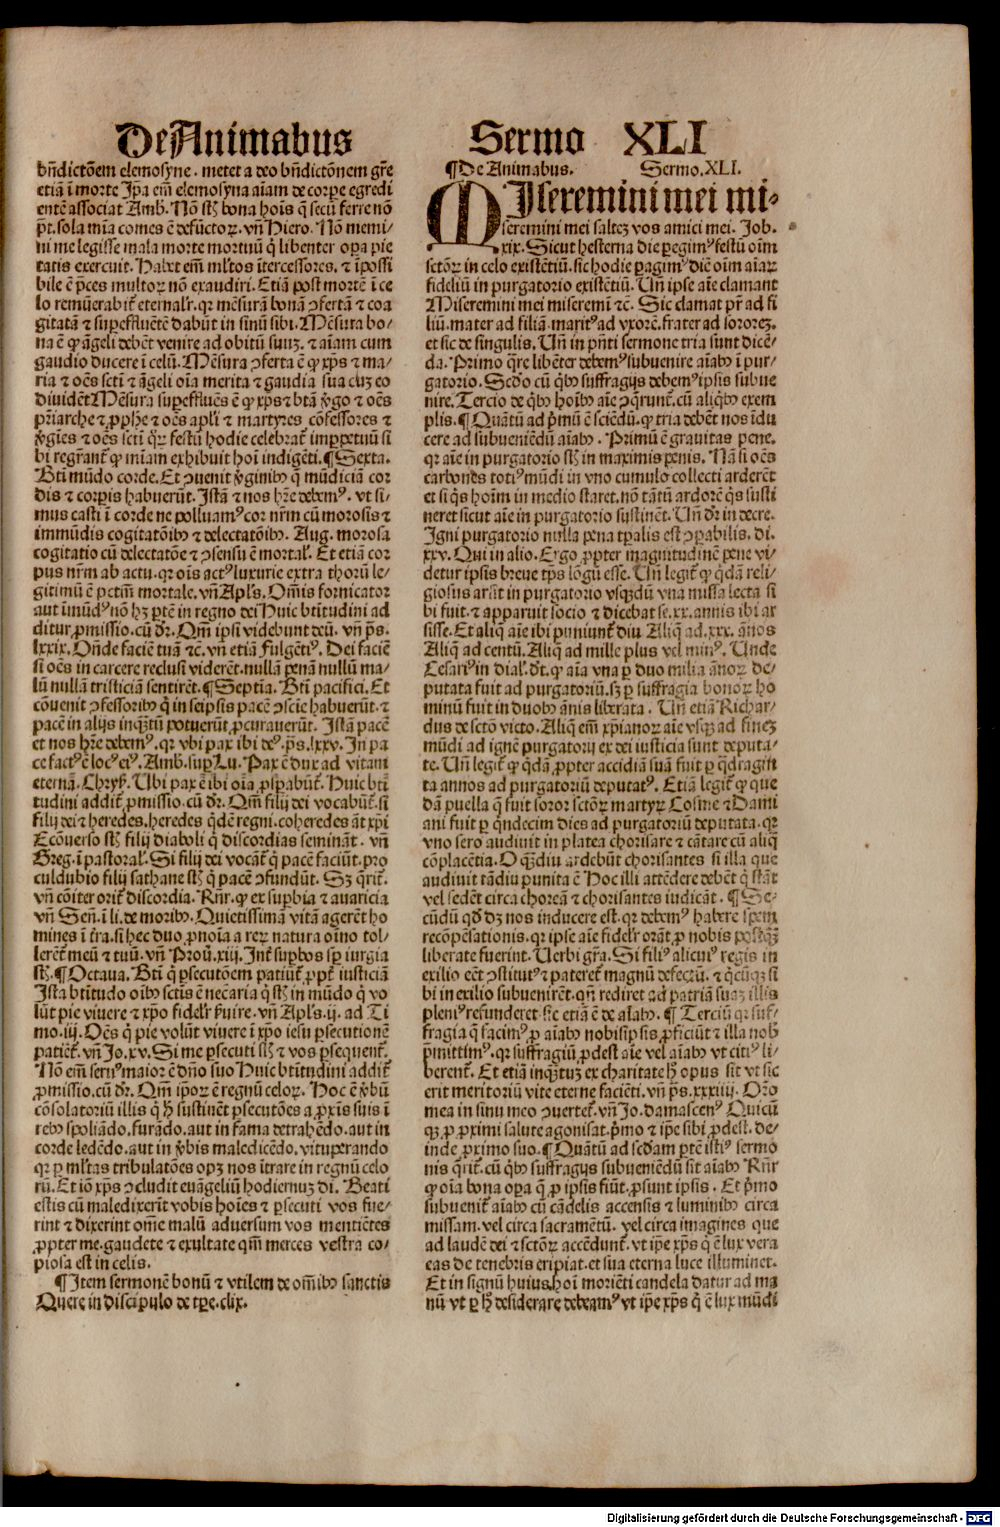 De Animabus
Sermo XLI
bñdictōem elemosyne. metet a deo bñdictōnem gr̄e
etiā ī morte Ip̄a em̄ elemosyna aīam de corpe egredi
entē associat Amb. Nō st̄ bona hoīs q̄ secū ferre nō
pt̄. sola mīa comes ē defūctoꝝ. vn̄ Hiero. Nō memi/
ni me legisse mala morte mortuū q̄ libenter oꝑa pie
tatis exercuit. Habet em̄ ml̄tos ītercessores. ⁊ īpossi
bile ē p̄ces multoꝝ nō exaudiri. Etiā post mortē ī ce
lo remūerabit̄ eternalr̄. qr mēsurā bonā ꝯfertā ⁊ coa
gitatā ⁊ suꝑeffluētē dabūt in sinū sibi. Mēsura bo/
na ē ꝙ āgeli debēt venire ad obitū suuꝫ. ⁊ aīam cum
gaudio ducere ī celū. Mēsura ꝯferta ē ꝙ xp̄s ⁊ ma/
ria ⁊ oēs scti ⁊ āgeli oīa merita ⁊ gaudia sua cuꝫ eo
diuidēt Mēsura suꝑeffluēs ē ꝙ xp̄s ⁊ btā v̄go ⁊ oēs
pr̄iarche ⁊ ꝓphe ⁊ oēs apl̄i ⁊ martyres cōfessores ⁊
v̄gīes ⁊ oēs scti qꝝ festū hodie celebrat̄ imꝑpetuū si
bi regr̄ant̄ ꝙ mīam exhibuit hoī indigēti. ¶ Sexta.
Bt̄i mūdo corde. Et ꝯuenit v̄ginibꝰ q̄ mūdiciā cor
dis ⁊ corꝑis habuerūt. Istā ⁊ nos hr̄e debemꝰ. vt si/
mus casti ī corde ne polluamꝰ cor nr̄m cū morosis ⁊
immūdis cogitatōibꝰ ⁊ delectatōibꝰ. Aug. morosa
cogitatio cū delectatōe ⁊ ꝯsensu ē mortal̄. Et etiā cor
pus nr̄m ab actu. qr oīs actꝰ luxurie extra thorū le/
gitimū ē pctm̄ mortale. vn̄ Apl̄s. Om̄is fornicator
aut īmūdꝰ nō hꝫ ꝑtē in regno dei Huic btītudini ad
ditur ꝓmissio. cū dr̄. Qm̄ ipsi videbunt deū. vn̄ ps̄.
lxxix. On̄de faciē tuā ⁊c. vn̄ etiā Fulgētiꝰ. Dei faciē
si oēs in carcere reclusi viderēt. nullā penā nullū ma/
lū nullā tristiciā sentirēt. ¶ Septīa. Bt̄i pacifici. Et
cōuenit ꝯfessoribꝰ q̄ in seipsis pacē ꝯscīe habuerūt. ⁊
pacē in alijs inqꝫtū potuerūt ꝓcurauerūt. Istā pacē
et nos hr̄e debemꝰ. qr vbi pax ibi deꝰ. ps̄. lxxv. In pa
ce factꝰ ē locꝰ eiꝰ. Amb. suꝑ Lu. Pax ē dux ad vitam
eternā. Chryſ. Ubi pax ē ibi oīa ꝓsꝑabūt̄. Huic bt̄i
tudini addit̄ ꝓmissio. cū dr̄. Qm̄ filij dei vocabūt̄. si
filij dei ⁊ heredes. heredes qdē regni. coheredes āt xp̄i
Ecōuerso st̄ filij diaboli q̄ discordias semināt. vn̄
Greg. ī pastoral̄. Si filij dei vocāt̄ q̄ pacē faciūt. pro
culdubio filij sathane st̄ q̄ pacē ꝯfundūt. Sꝫ qrit̄.
vn̄ cōiter orit̄ discordia. Rn̄r. ꝙ ex suꝑbia ⁊ auaricia
vn̄ Sen̄. ī li. de moribꝰ. Quietissimā vitā agerēt ho
mines ī tr̄a. si hec duo ꝓnoīa a reꝝ natura oīno tol/
lerēt̄ meū ⁊ tuū. vn̄ Prou̅. xiij. Int̄ suꝑbos sꝑ iurgia
st̄. ¶ Octaua. Bt̄i q̄ ꝑsecutōem patiūt̄ ꝓpt̄ iusticiā
Ista btītudo oībꝰ sctīs ē nec̄aria q̄ st̄ in mūdo q̄ vo
lūt pie viuere ⁊ xp̄o fidelr̄ ẜuire. vn̄ Apl̄s. ij. ad Ti
mo. iij. Oēs q̄ pie volūt viuere ī xp̄o iesu ꝑsecutionē
patiēt̄. vn̄ Jo. xv. Si me ꝑsecuti st̄ ⁊ vos ꝑsequent̄.
Nō em̄ seruꝰ maior ē dn̄o suo Huic btītudini addit̄
ꝓmissio. cū dr̄. Qm̄ ip̄oꝝ ē regnū celoꝝ. Hoc ē v̄bū
cōsolatoriū illis q̄ h̄ sustinēt ꝑsecutōes a ꝓxīs suis ī
rebꝰ spoliādo. furādo. aut in fama detrahēdo. aut in
corde ledēdo. aut in v̄bis maledicēdo. vituperando
qr ꝑ ml̄tas tribulatōes opꝫ nos ītrare in regnū celo
rū. Et iō xp̄s ꝯcludit euāgeliū hodiernuꝫ di. Beati
estis cū maledixerīt vobis hoīes ⁊ ꝑsecuti vos fue/
rint ⁊ dixerint om̄e malū aduersum vos mentiētes
ꝓpter me. gaudete ⁊ exultate qm̄ merces vestra co/
piosa est in celis.
¶ Item sermonē bonū ⁊ vtilem de om̄ibꝰ sanctis
Quere in discipulo de tꝑe. clix.
¶ De Animabus. Sermo. XLI.
MIseremini mei mi-
seremini mei salteꝫ vos amici mei. Job.
xix. Sicut hesterna die ꝑegimꝰ festū oīm
sctōꝝ in celo existētiū. sic hodie ꝑagimꝰ diē oīm aīaꝝ
fideliū in purgatorio existētiū. Un̄ ipse aīe clamant
Miseremini mei miseremi ⁊c. Sic clamat pr̄ ad fi
liū. mater ad filiā. maritꝰ ad vxorē. frater ad sororeꝫ.
et sic de singulis. Un̄ in pn̄ti sermone tria sunt dicē/
da. Primo qr̄e libēter debemꝰ subuenire aīabꝰ ī pur/
gatorio. Scdo cū qbꝰ suffragijs debemꝰ ipsis subue
nire. Tercio de qbꝰ hoībꝰ aīe ꝯqrunt̄. cū aliqbꝰ exem
plis. ¶ Quātū ad p̄mū ē sciēdū. ꝙ tria debēt nos īdu
cere ad subueniēdū aīabꝰ. Primū ē grauitas pene.
qr aīe in purgatorio st̄ in maximis penis. Nā si oēs
carbones totiꝰ mūdi in vno cumulo collecti arderēt
et si qs hoīm in medio staret. nō tātū ardorē qs susti
neret sicut aīe in purgatorio sustinēt. Un̄ dr̄ in decre.
Igni purgatorio nulla pena tꝑalis est ꝯꝑabilis. di.
xxv. Qui in alio. Ergo ꝓpter magnitudinē pene vi/
detur ipsis breue tꝑs lōgū esse. Un̄ legit̄ ꝙ qdā reli/
giosus arsit in purgatorio vsqꝫdū vna missa lecta si
bi fuit. ⁊ apparuit socio ⁊ dicebat se. xx. annis ibi ar
sisse. Et aliq aīe ibi puniunt̄ diu Aliq ad. xxx. ānos
Aliq ad centū. Aliq ad mille plus vel minꝰ. Unde
Cesariꝰ in dial̄. dt̄. ꝙ aīa vna ꝑ duo milia ānoꝝ de/
putata fuit ad purgatoriū. sꝫ ꝑ suffragia bonoꝝ ho
minū fuit in duobꝰ ānis liberata. Un̄ etiā Richar/
dus de scto victo. Aliq em̄ xp̄ianoꝝ aīe vsqꝫ ad fineꝫ
mūdi ad ignē purgatorij ex dei iusticia sunt deputa/
te. Un̄ legit̄ ꝙ qdā ꝓpter accidiā suā fuit ꝑ qdragin
ta annos ad purgatoriū deputatꝰ. Etiā legit̄ ꝙ que
dā puella q̄ fuit soror sctōꝝ martyꝝ Cosme ⁊ Dami
ani fuit ꝑ qndecim dies ad purgatoriū deputata. qr
vno sero audiuit in platea chorisare ⁊ cātare cū aliq
cōplacētia. O qꝫdiu ardebūt chorisantes si illa que
audiuit tādiu punita ē Hoc illi attēdere debēt q̄ stāt
vel sedēt circa choreā ⁊ chorisantes iudicāt. ¶ Se/
cūdū qd̄ dꝫ nos inducere est. qr debemꝰ habere spem
recōpēsationis. qr ipse aīe fidelr̄ orāt ꝓ nobis postqꝫ
liberate fuerint. Uerbi gr̄a. Si filiꝰ alicuiꝰ regis in
exilio eēt ꝯstitutꝰ ⁊ pateret̄ magnū defectū. ⁊ qcūqꝫ si
bi in exilio subuenirēt. qn̄ rediret ad patriā suaꝫ illis
pleniꝰ refunderet sic etiā ē de aīabꝰ. ¶ Terciū qr suf/
fragia q̄ facimꝰ ꝓ aīabꝰ nobisipsis ꝓficiūt ⁊ illa nob̄
p̄mittimꝰ. qr suffragiū ꝓdest aīe vel aīabꝰ vt citiꝰ li/
berent̄. Et etiā inqꝫtuꝫ ex charitate h̄ opus sit vt sic
erit meritoriū vite eterne faciēti. vn̄ ps̄. xxxiiij. Oro
mea in sinu meo ꝯuertet̄. vn̄ Jo. damascenꝰ Quicū
qꝫ ꝓ ꝓximi salute agonisat. p̄mo ⁊ ip̄e sibi ꝓdest. de/
inde ꝓximo suo. ¶ Quātū ad scdam ꝑtē istiꝰ sermo
nis qrit̄. cū qbꝰ suffragijs subueniēdū sit aīabꝰ Rn̄r
ꝙ oīa bona oꝑa q̄ ꝓ ipsis fiūt. ꝓsunt ipsis. Et p̄mo
subuenit̄ aīabꝰ cū cādelis accensis ⁊ luminibꝰ circa
missam. vel circa sacramētū. vel circa imagines que
ad laudē dei ⁊ sctōꝝ accēdunt̄. vt ip̄e xp̄s q̄ ē lux vera
eas de tenebris eripiat. et sua eterna luce illuminet.
Et in signū huius hoī moriēti candela datur ad ma
nū vt ꝑ h̄ desiderare debeamꝰ vt ip̄e xp̄s q̄ ē lux mūdi
Digitalisierung gefördert durch die Deutsche Forschungsgemeinschaft - DFG